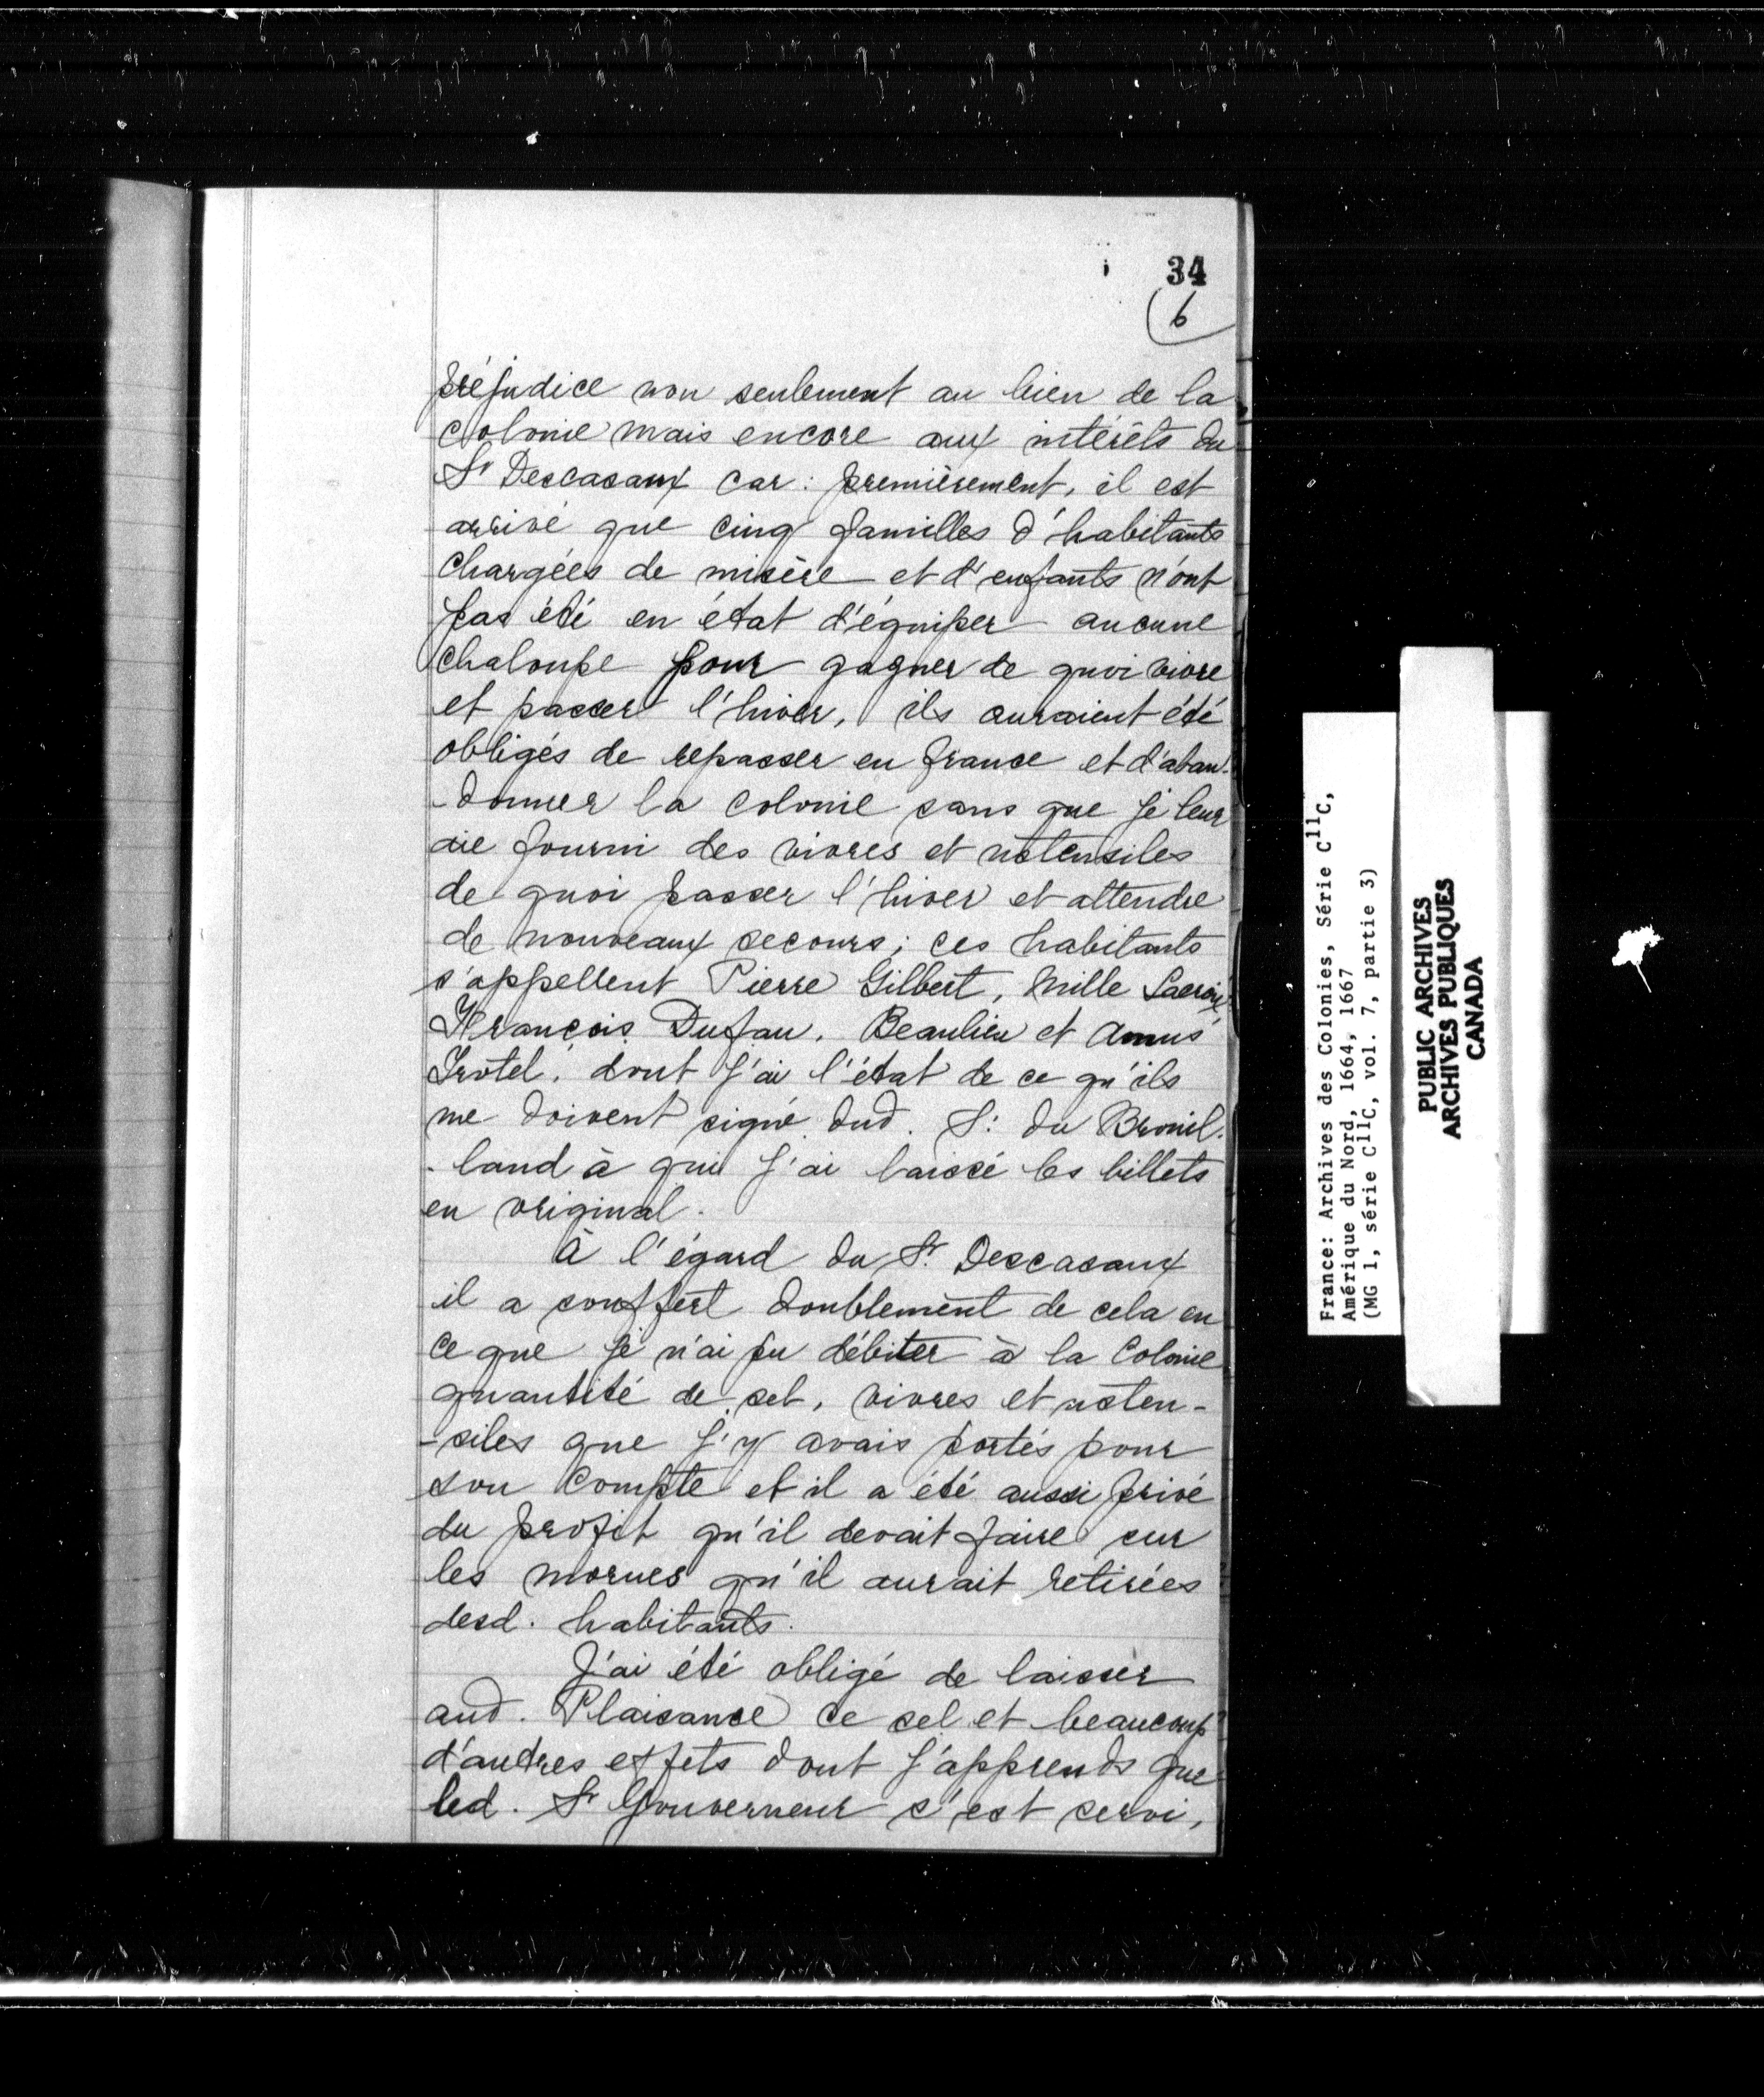 34
6
préjudice non seulement au bien de la
colonie mais encore aux intérêts du
Sr Descasaux car : premièrement, il est
arrivé que cinq familles d'habitants
chargées de misère et d'enfants n'ont
pas été en état d'équiper aucune
chaloupe pour gagner de quoi vivre
et passer l'hiver, ils auraient été
obligés de repasser en france et d'aban-
-donner la colonie sans que je leur
aie fourni des vivres et ustensiles
de quoi passer l'hiver et attendre
de nouveaux secours; ces habitants
s'appellent Pierre Gilbert, Mille Lacroix,
François Dufau, Beaulieu et
Trotel, dont j'ai l'état de ce qu'ils
me doivent signé dud. S: du Brouil-
-land à qui j'ai laissé les billets
en original.
À l'égard du Sr. Descasaux
il a souffert doublement de cela en
ce que je n'ai pu débiter à la Colonie
quantité de sel, vivres et usten-
-siles que j'y avais portés pour
son compte et il a été aussi privé
du profit qu'il devait faire sur
les morues qu'il aurait retirées
desd. habitants.
J'ai été obligé de laisser
aud. Plaisance ce sel et beaucoup
d'autres effets dont j'apprends que
led. Sr Gouverneur s'est servi,
France: Archives des Colonies, Série C11C,
Amérique du Nord, 1664, 1667
(MG 1, série C11C, vol. 7, partie 3)
PUBLIC ARCHIVES
ARCHIVES PUBLIQUES
CANADA